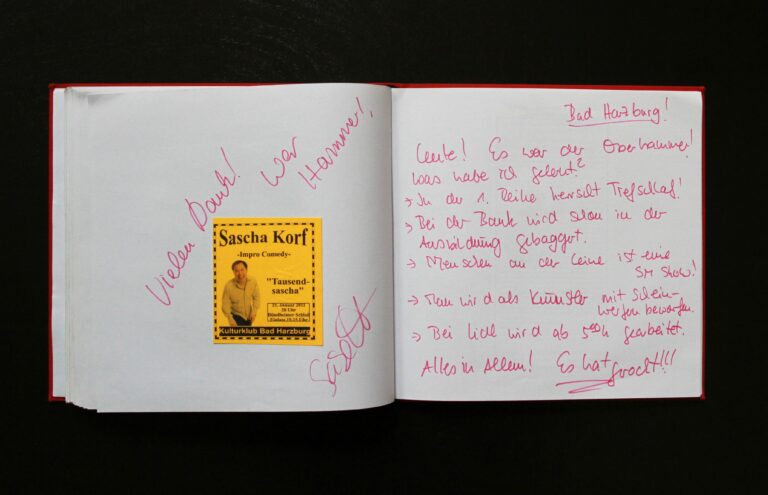 Vielen Dank! War
Hammer!,
Sascha Korf
-Impro Comedy-
"Tausend-
sascha"
20 Uhr
Bündheimer Schloß
Einlass 19.15 Uhr
Kulturklub Bad Harzburg
Bad Harzburg!
Leute! Es war der Oberhammer!
Was habe ich gelernt?
→ In der 1. Reihe herrscht Tiefschlaf!
→ Bei der Bank wird schon in der
Ausbildung gebaggert.
→ Menschen an der Leine ist eine
SM Show!
→ Man wird als Künstler mit Schein-
werfern beworfen.
→ Bei Lidl wird ab 5ººh gearbeitet.
Alles in Allem! Es hat
gerockt!!!